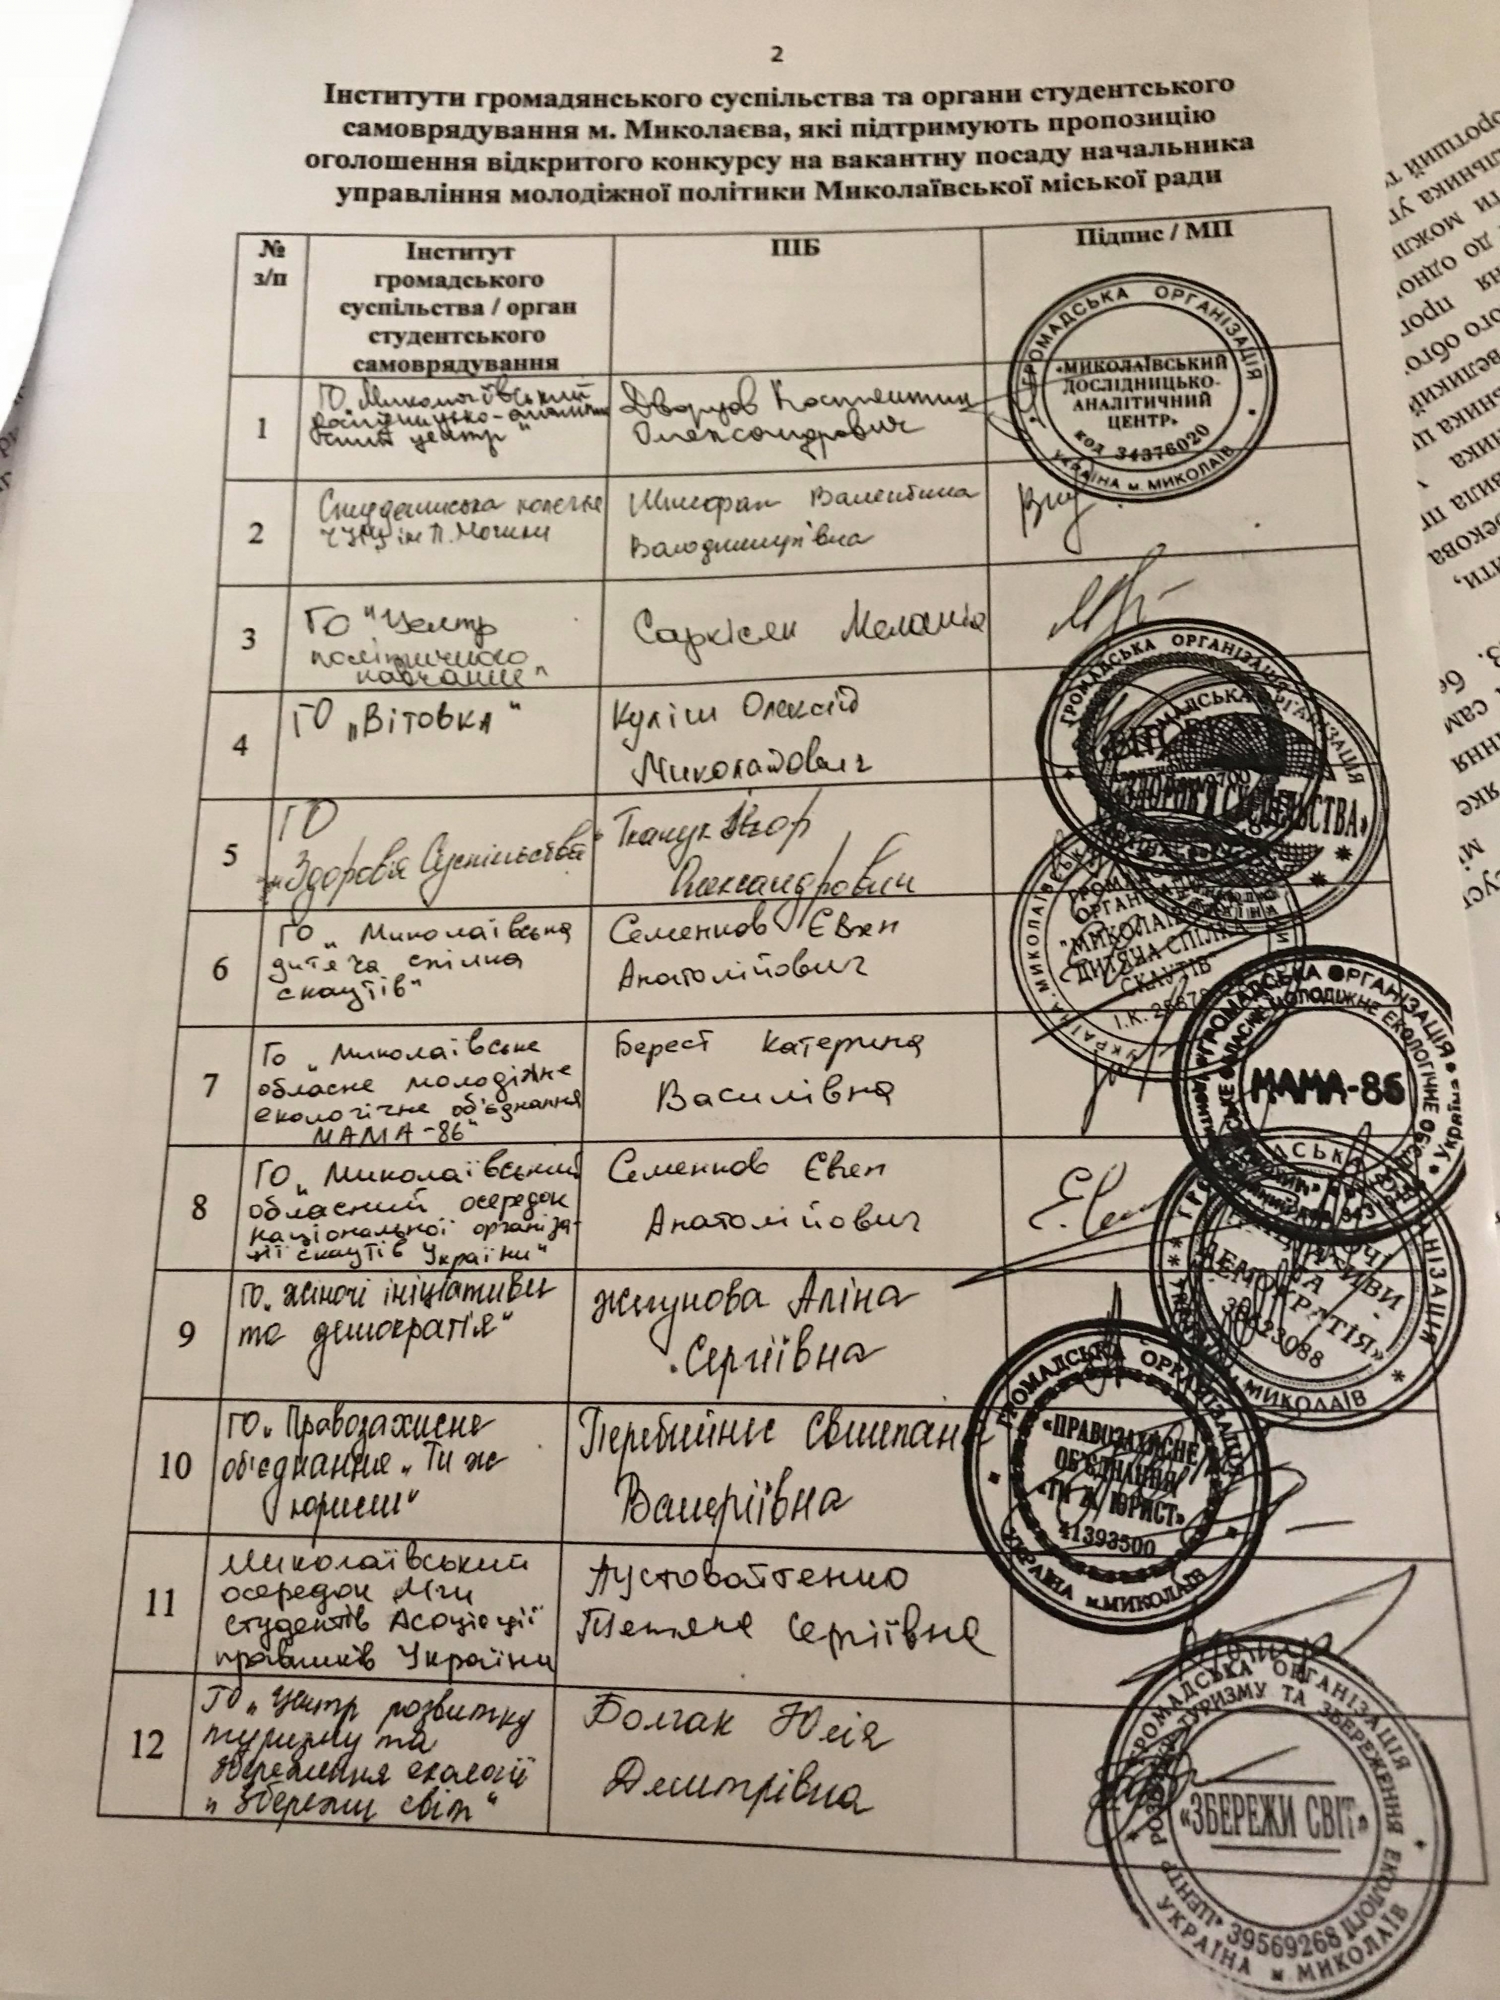 2
Інститути громадянського суспільства та органи студентського
самоврядування м. Миколаєва, які підтримують пропозицію
оголошення відкритого конкурсу на вакантну посаду начальника
управління молодіжної політики Миколаївської міської ради
№
з/п
Інститут
громадського
суспільства / орган
студентського
самоврядування
ПІБ
Підпис / МП
1
ГО Миколаївський
центр"
Дворцов Костянтин
Олександрович
ГРОМАДСЬКА ОРГАНІЗАЦІЯ
«МИКОЛАЇВСЬКИЙ
ДОСЛІДНИЦЬКО-
АНАЛІТИЧНИЙ
ЦЕНТР»
КОД 34376020
УКРАЇНА м. МИКОЛАЇВ
2
Студентська колегія
ЧНУ ім П. Могили
Валентина
Володимирівна
3
ГО "Центр
політичного
навчання"
Саркісян Меланія
4
ГО „Вітовка"
Куліш Олексій
Миколайович
ГРОМАДСЬКА ОРГАНІЗАЦІЯ
5
ГО
„Здоров'я Суспільства"
Ткачук Ігор
Олександрович
ГРОМАДСЬКА ОРГАНІЗАЦІЯ
«ЗДОРОВ'Я СУСПІЛЬСТВА»
6
ГО „Миколаївська
дитяча спілка
скаутів"
Семенков Євген
Анатолійович
ГРОМАДСЬКА
ОРГАНІЗАЦІЯ
"МИКОЛАЇВСЬКА
ДИТЯЧА СПІЛКА
СКАУТІВ"
7
Го „Миколаївське
обласне молодіжне
екологічне об'єднання
МАМА-86"
Берест Катерина
Василівна
ГРОМАДСЬКА ОРГАНІЗАЦІЯ
МАМА-86
8
ГО „Миколаївський
обласний осередок
національної організа-
ції скаутів України"
Семенков Євген
Анатолійович
9
ГО „Жіночі ініціативи
та демократія"
Жмунова Аліна
Сергіївна
ДЕМОКРАТІЯ»
м. МИКОЛАЇВ
10
ГО „Правозахисне
об'єднання „Ти ж
юрист"
Перебийніс Світлана
Валеріївна
ГРОМАДСЬКА ОРГАНІЗАЦІЯ
«ПРАВОЗАХИСНЕ
ОБ'ЄДНАННЯ
«ТИ Ж ЮРИСТ»
41393500
УКРАЇНА м.МИКОЛАЇВ
11
Миколаївський
осередок Ліги
студентів Асоціації
правників України
Пустовойтенко
Тетяна Сергіївна
12
ГО „Центр розвитку
туризму та
збереження екології
„Збережи світ"
Болгак Юлія
Дмитрівна
ГРОМАДСЬКА ОРГАНІЗАЦІЯ
ЦЕНТР РОЗВИТКУ ТУРИЗМУ ТА ЗБЕРЕЖЕННЯ ЕКОЛОГІЇ
«ЗБЕРЕЖИ СВІТ»
39569268
УКРАЇНА м МИКОЛАЇВ